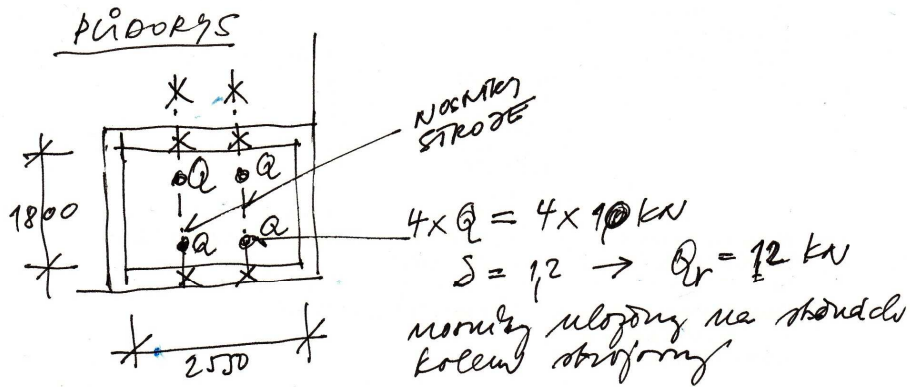 PŮDORYS
NOSNÍKY
STROJE
Q Q
1800
Q Q
4 x Q = 4 x 10 kN
δ = 1,2 → Qr = 12 kN
nosníky uloženy na stěnách
kolem strojovny
2550